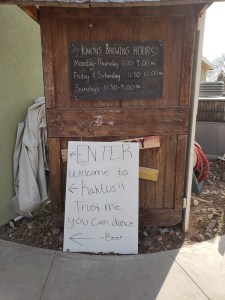 KAKTUS BREWING HOURS:
Monday-Thursday 11:30-9:00
Friday & Saturday 11:30-10:00
Sundays 11:30-9:00
←ENTER
Welcome to
←Kaktus!!
Trust me
you can dance
← -Beer